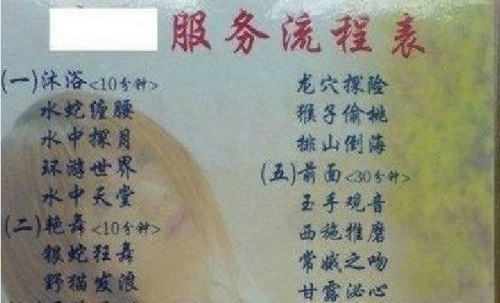 服务流程表
(一)沐浴<10分钟>
水蛇缠腰
水中探月
环游世界
水中天堂
(二)艳舞<10分钟>
银蛇狂舞
野猫发浪
龙穴探险
猴子偷桃
排山倒海
(五)前面<30分钟>
玉手观音
西施推磨
常娥之吻
甘露沁心